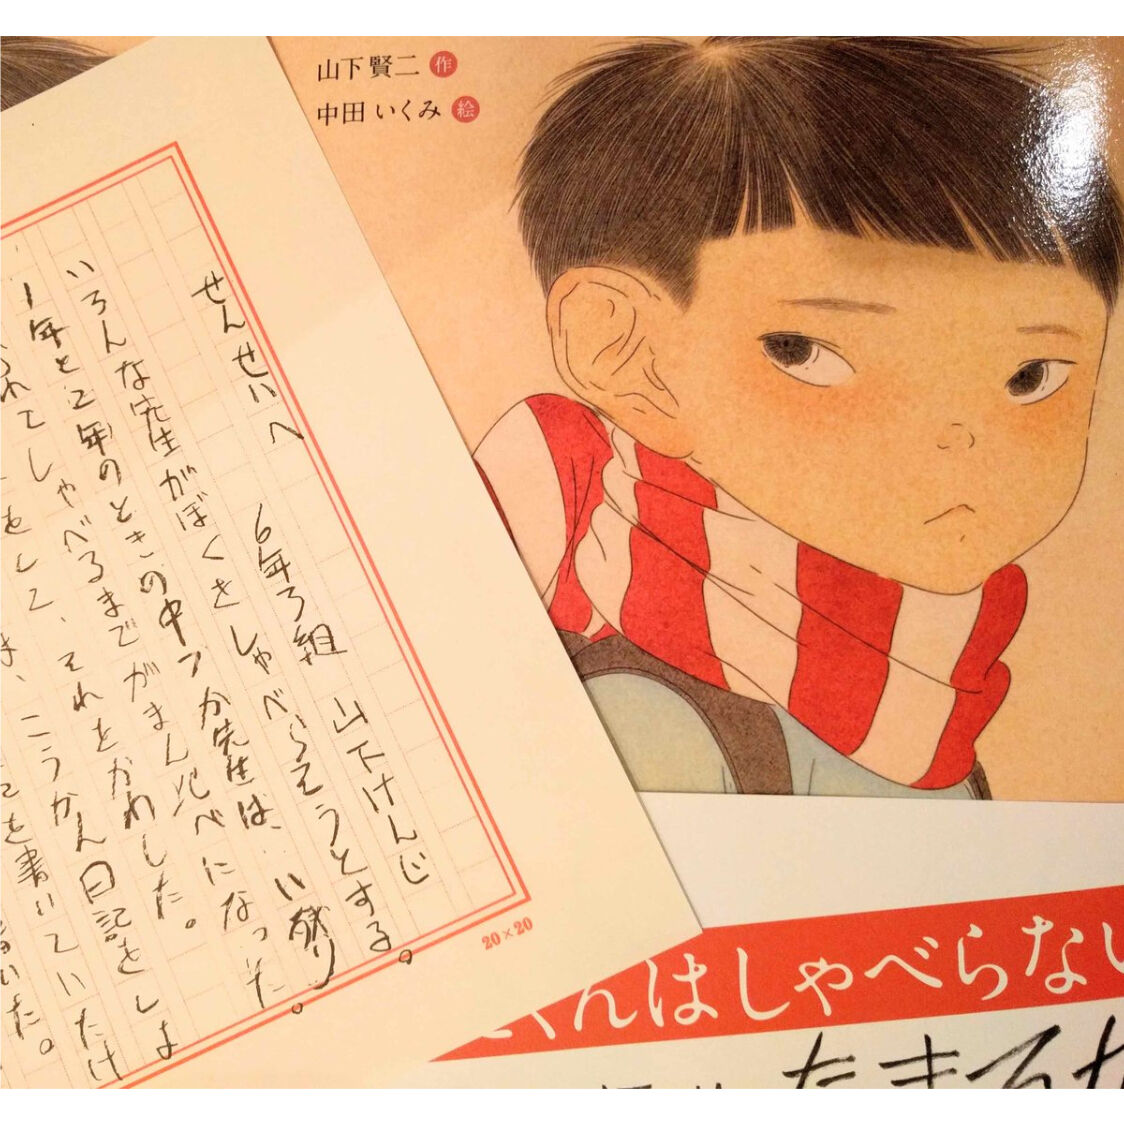 山下賢二 作
中田いくみ 絵
せんせいへ 6年3組 山下けんじ
いろんな先生がぼくをしゃべらそうとする。
1年と2年のときの中つか先生は、い残り
れてしゃべるまでがまん比べになった。
をして、それをかわした。
ま、こうかん日記をしよ
を書いていたけ
いた。
20×20
くんはしゃべらない